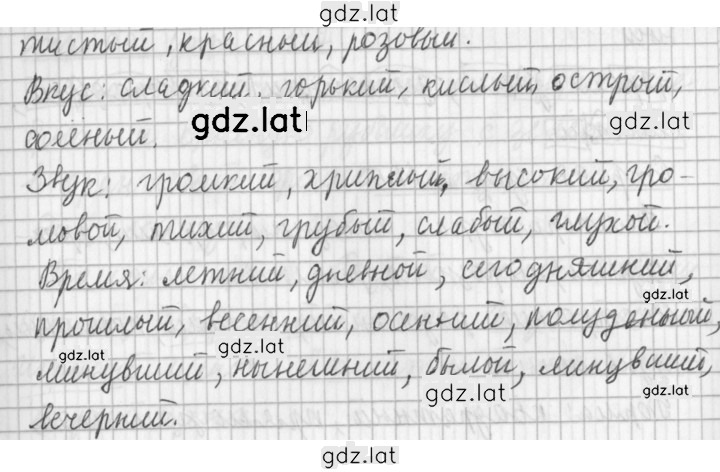 gdz.lat
тистый, красный, розовый.
Вкус: сладкий. горький, кислый, острый,
gdz.lat
gdz.lat
солёный.
Звук: громкий, хриплый, высокий, гро-
gdz.lat
мовой, тихий, грубый, слабый, глухой.
Время: летний, дневной, сегодняшний,
gdz.lat
прошлый, весенний, осенний, полуденный,
gdz.lat
gdz.lat
минувший, нынешний, былой, минувший,
gdz.lat
gdz.lat
вечерний.
gdz.lat